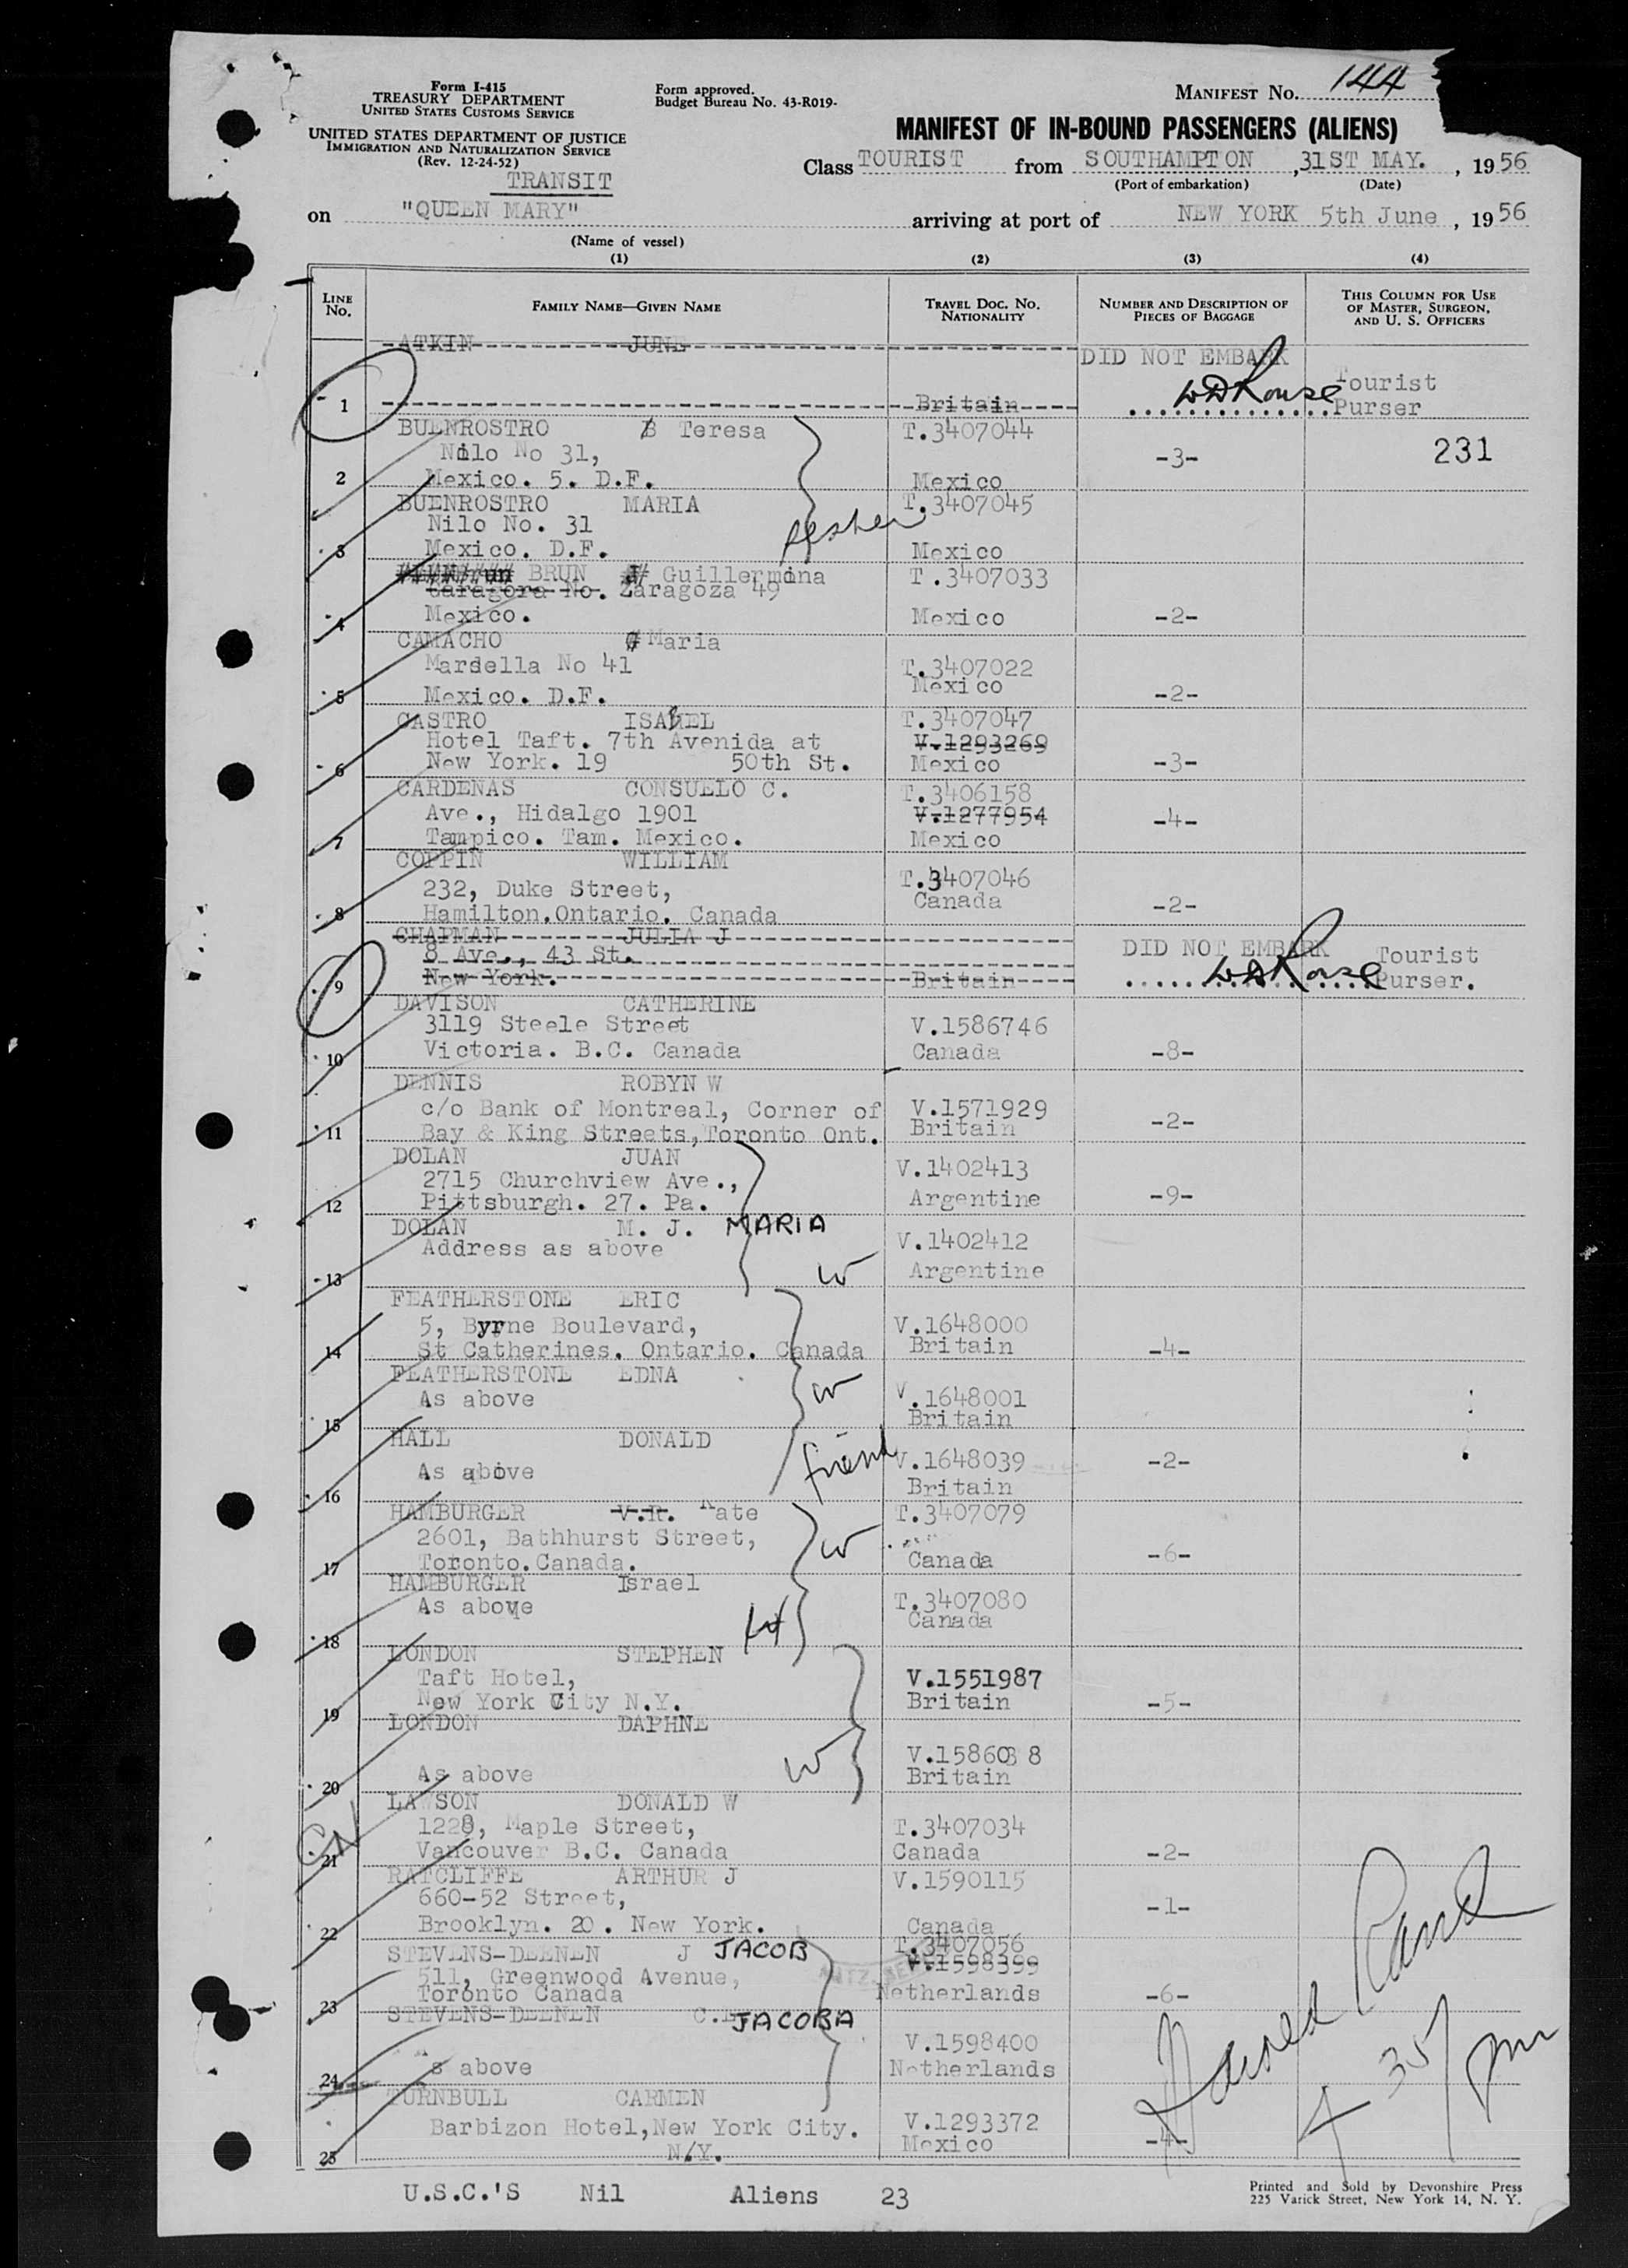 Form I-415
TREASURY DEPARTMENT
UNITED STATES CUSTOMS SERVICE
UNITED STATES DEPARTMENT OF JUSTICE
IMMIGRATION AND NATURALIZATION SERVICE
(Rev. 12-24-52)
TRANSIT
Form approved.
Budget Bureau No. 43-R019-
MANIFEST NO. 144
MANIFEST OF IN-BOUND PASSENGERS (ALIENS)
Class TOURIST from SOUTHAMPTON, 31ST MAY., 1956
(Port of embarkation) (Date)
on "QUEEN MARY" arriving at port of NEW YORK 5th June, 1956
(Name of vessel)
(1) (2) (3) (4)
LINE NO. FAMILY NAME—GIVEN NAME TRAVEL DOC. NO. NATIONALITY NUMBER AND DESCRIPTION OF PIECES OF BAGGAGE THIS COLUMN FOR USE OF MASTER, SURGEON, AND U. S. OFFICERS
ATKIN JUNE DID NOT EMBARK
Tourist
1 Britain Purser
BUENROSTRO B Teresa T.3407044
Nilo No 31, -3- 231
2 Mexico. 5. D.F. Mexico
BUENROSTRO MARIA T.3407045
Nilo No. 31
3 Mexico. D.F. Mexico
BRUN Guillermina T.3407033
Saragora No. Zaragoza 49
4 Mexico. Mexico -2-
CAMACHO Maria
Marsella No 41 T.3407022
5 Mexico. D.F. Mexico -2-
CASTRO ISABEL T.3407047
Hotel Taft. 7th Avenida at V.1293269
6 New York. 19 50th St. Mexico -3-
CARDENAS CONSUELO C. T.3406158
Ave., Hidalgo 1901 V.1277954 -4-
7 Tampico. Tam. Mexico. Mexico
COPPIN WILLIAM
232, Duke Street, T.3407046
8 Hamilton.Ontario. Canada Canada -2-
CHAPMAN JULIA J
8 Ave., 43 St. DID NOT EMBARK Tourist
9 New York. Britain Purser.
DAVISON CATHERINE
3119 Steele Street V.1586746
10 Victoria. B.C. Canada Canada -8-
DENNIS ROBYN W
c/o Bank of Montreal, Corner of V.1571929
11 Bay & King Streets,Toronto Ont. Britain -2-
DOLAN JUAN
2715 Churchview Ave., V.1402413
12 Pittsburgh. 27. Pa. Argentine -9-
DOLAN M. J. MARIA
Address as above V.1402412
13 W Argentine
FEATHERSTONE ERIC
5, Byrne Boulevard, V.1648000
14 St Catherines. Ontario. Canada Britain -4-
FEATHERSTONE EDNA
As above W V.1648001
15 Britain
HALL DONALD
As above friend V.1648039 -2-
16 Britain
HAMBURGER V.R. Kate T.3407079
2601, Bathhurst Street, W
17 Toronto.Canada. Canada -6-
HAMBURGER Israel
As above T.3407080
18 Canada
LONDON STEPHEN
Taft Hotel, V.1551987
19 New York City N.Y. Britain -5-
LONDON DAPHNE
W V.158608 8
20 As above Britain
LAWSON DONALD W
1228, Maple Street, T.3407034
21 Vancouver B.C. Canada Canada -2-
RATCLIFFE ARTHUR J V.1590115
660-52 Street, -1-
22 Brooklyn. 20. New York. Canada
STEVENS-DEENEN J JACOB T.3407056
511, Greenwood Avenue, V.1598399
23 Toronto Canada Netherlands -6-
STEVENS-DEENEN C. JACOBA
V.1598400
24 As above Netherlands
TURNBULL CARMEN
Barbizon Hotel,New York City. V.1293372
25 N.Y. Mexico -4-
4 35 pm
U.S.C.'S Nil Aliens 23
Printed and Sold by Devonshire Press
225 Varick Street, New York 14, N. Y.